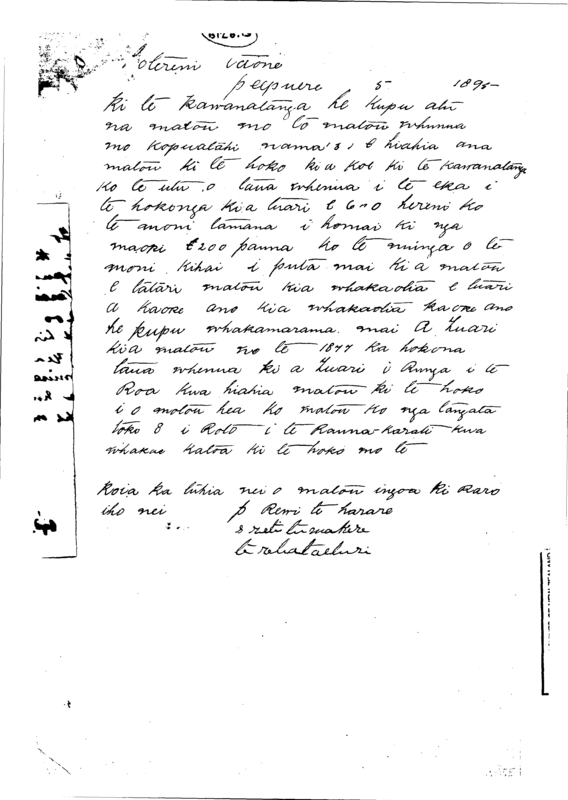 Oterini vaone
pepuere 5 1895
Ki te Kawanatanga he Kupu atu
na matou mo to matou whenua
mo Kopuatahi nama 3, E hiahia ana
matou ki te hoko kia koe ki te Kawanatanga
Ko te utu o taua whenua i te eka i
te hokonga kia tuari E 6-0 hereni ko
te moni tamana i homai ki nga
maori £200 pauna ko te nuinga o te
moni kihai i puta mai kia matou
E tatari matou kia whakaotia E tuari
a kaore ano kia whakaotia kaore ano
he kupu whakamarama mai A Tuari
kia matou no te 1877 ka hokona
taua whenua ki a Tuari i Runga i te
Roa kua hiahia matou ki te hoko
i o matou hea ko matou ko nga tangata
toko 8 i Roto i te Rauna-Karati kua
whakae katoa ki te hoko mo te
koia ka tuhia nei o matou ingoa ki Raro
iho nei p Rewi te harare